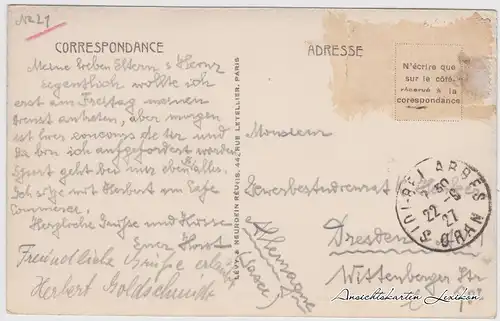 No 21
CORRESPONDANCE
ADRESSE
N'écrire que
sur le côté
réservé à la
corespondance
Meine lieben Eltern u Heinz
eigentlich wollte ich
erst am Freitag meinen
Dienst antreten, aber morgen
ist hier concours de tir und
da bin ich aufgefordert worden
Sport geht bei mir über alles.
Ich sitze mit Herbert im Café
Commerce.
Herzliche Grüße und Küsse
Euer Horst
Freundliche Grüße erlaubt
Herbert Goldschmidt
LEVY & NEURDEIN RÉUNIS, 44, RUE LETELLIER, PARIS
Monsieur
Gewerbestudienrat
Dresden
Wittenberger Str
Allemagne
(Saxe)
SIDI-BEL-ABBÈS
22 -6
27
ORAN
Ansichtskarten Lexikon